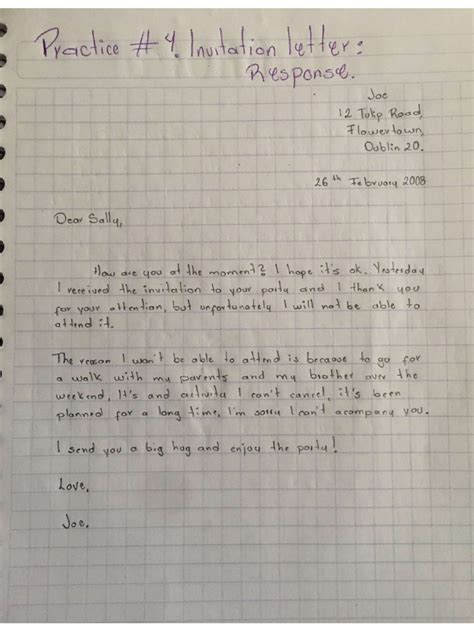 Practice # 4. Invitation letter:
Response.
Joe
12 Tokp Road,
Flowertown,
Dublin 20.
26th February 2008
Dear Sally,
How are you at the moment? I hope it's ok. Yesterday
I received the invitation to your party and I thank you
for your attention, but unfortunately I will not be able to
attend it.
The reason I won't be able to attend is because to go for
a walk with my parents and my brother over the
weekend, It's and activity I can't cancel, it's been
planned for a long time, I'm sorry I can't acompany you.
I send you a big hug and enjoy the party!
Love,
Joe.